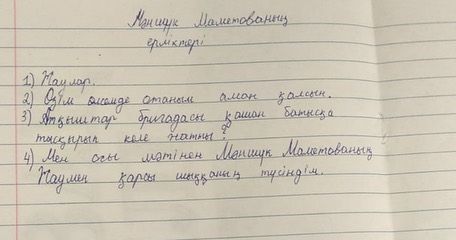 Мәншүк Маметованың
ерліктері
1) Жаулар.
2) Өзім өлсемде отаным аман қалсын.
3) Атқыштар бригадасы қашан батысқа
келе жатты?
4) Мен осы мәтінен Мәншүк Маметованың
Жаумен қарсы шыққаның түсіндім.